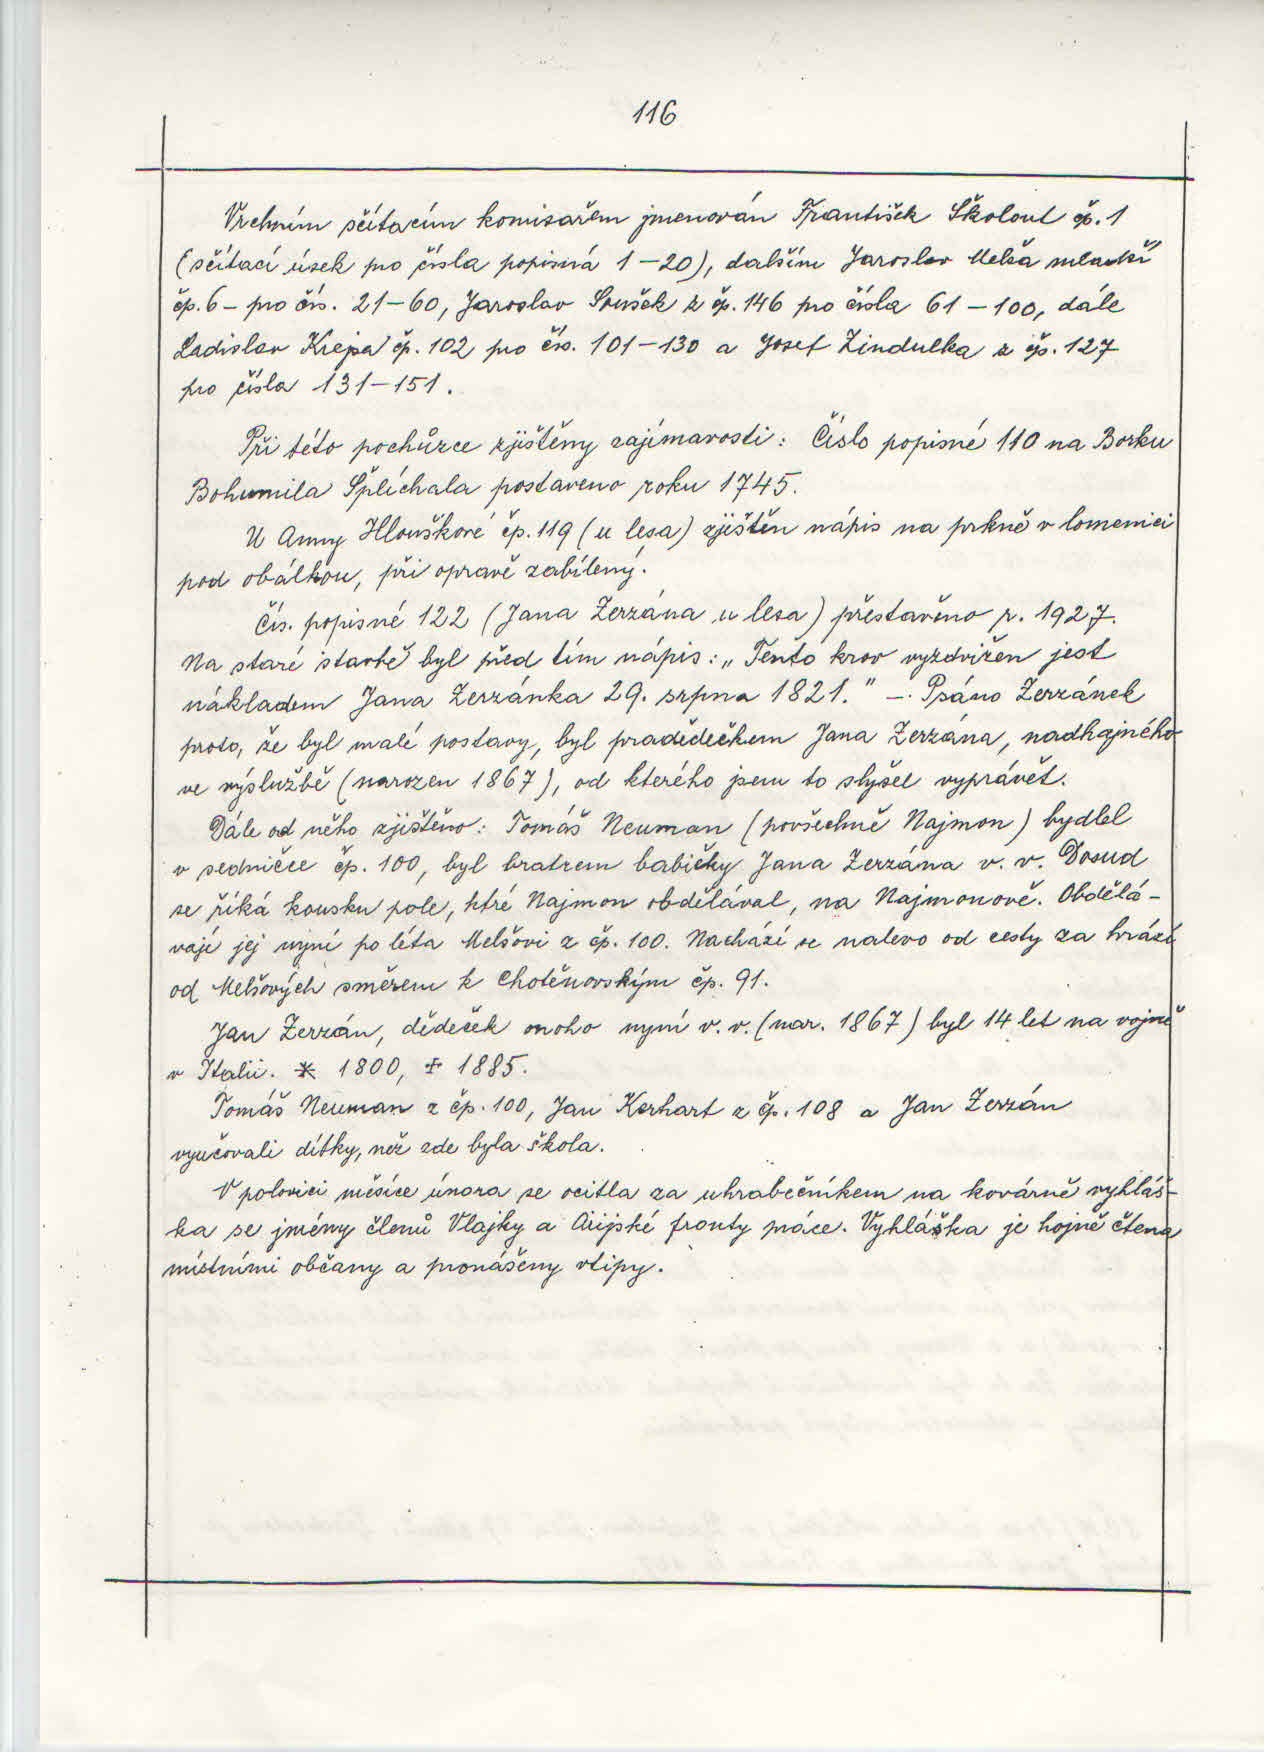 116
Vrchním sčítacím komisařem jmenován František Školout čp. 1
(sčítací úsek pro čísla popisná 1-20), dalším Jaroslav Melša mladší
čp. 6 - pro čís. 21-60, Jaroslav Soušek z čp. 146 pro čísla 61-100, dále
Ladislav Krejsa čp. 102 pro čís. 101-130 a Josef Zindulka z čp. 127
pro čísla 131-151.
Při této pochůzce zjištěny zajímavosti: Číslo popisné 110 na Borku
Bohumila Šplíchala postaveno roku 1745.
U Anny Hlouškové čp. 119 (u lesa) zjištěn nápis na prkně v lomenici
pod obálkou, při opravě zabílený.
Čís. popisné 122 (Jana Zerzána u lesa) přestavěno r. 1927.
Na staré stavbě byl před tím nápis: „Tento krov vyzdvižen jest
nákladem Jana Zerzánka 29. srpna 1821." - Psáno Zerzánek
proto, že byl malé postavy, byl pradědečkem Jana Zerzána, nadhajného
ve výslužbě (narozen 1867), od kterého jsem to slyšel vyprávět.
Dále od něho zjištěno: Tomáš Neuman (povšechně Najmon) bydlel
v sedničce čp. 100, byl bratrem babičky Jana Zerzána v. v. Dosud
se říká kousku pole, ktré Najmon obdělával, na Najmonově. Obdělá-
vají jej nyní po léta Melšovi z čp. 100. Nachází se nalevo od cesty za hrází
od Melšových směrem k Chotěnovským čp. 91.
Jan Zerzán, dědeček onoho nyní v. v. (nar. 1867) byl 14 let na vojně
v Italii. * 1800, + 1885.
Tomáš Neuman z čp. 100, Jan Kerhart z čp. 108 a Jan Zerzán
vyučovali dítky, než zde byla škola.
V polovici měsíce února se ocitla za uhrabečníkem na kovárně vyhláš-
ka se jmény členů Vlajky a Arijské fronty práce. Vyhláška je hojně čtena
místními občany a pronášeny vtipy.